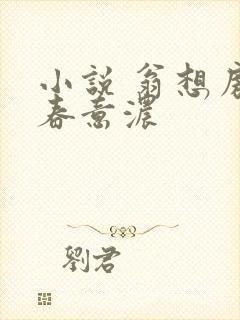 小説 翁想
春意濃
劉君